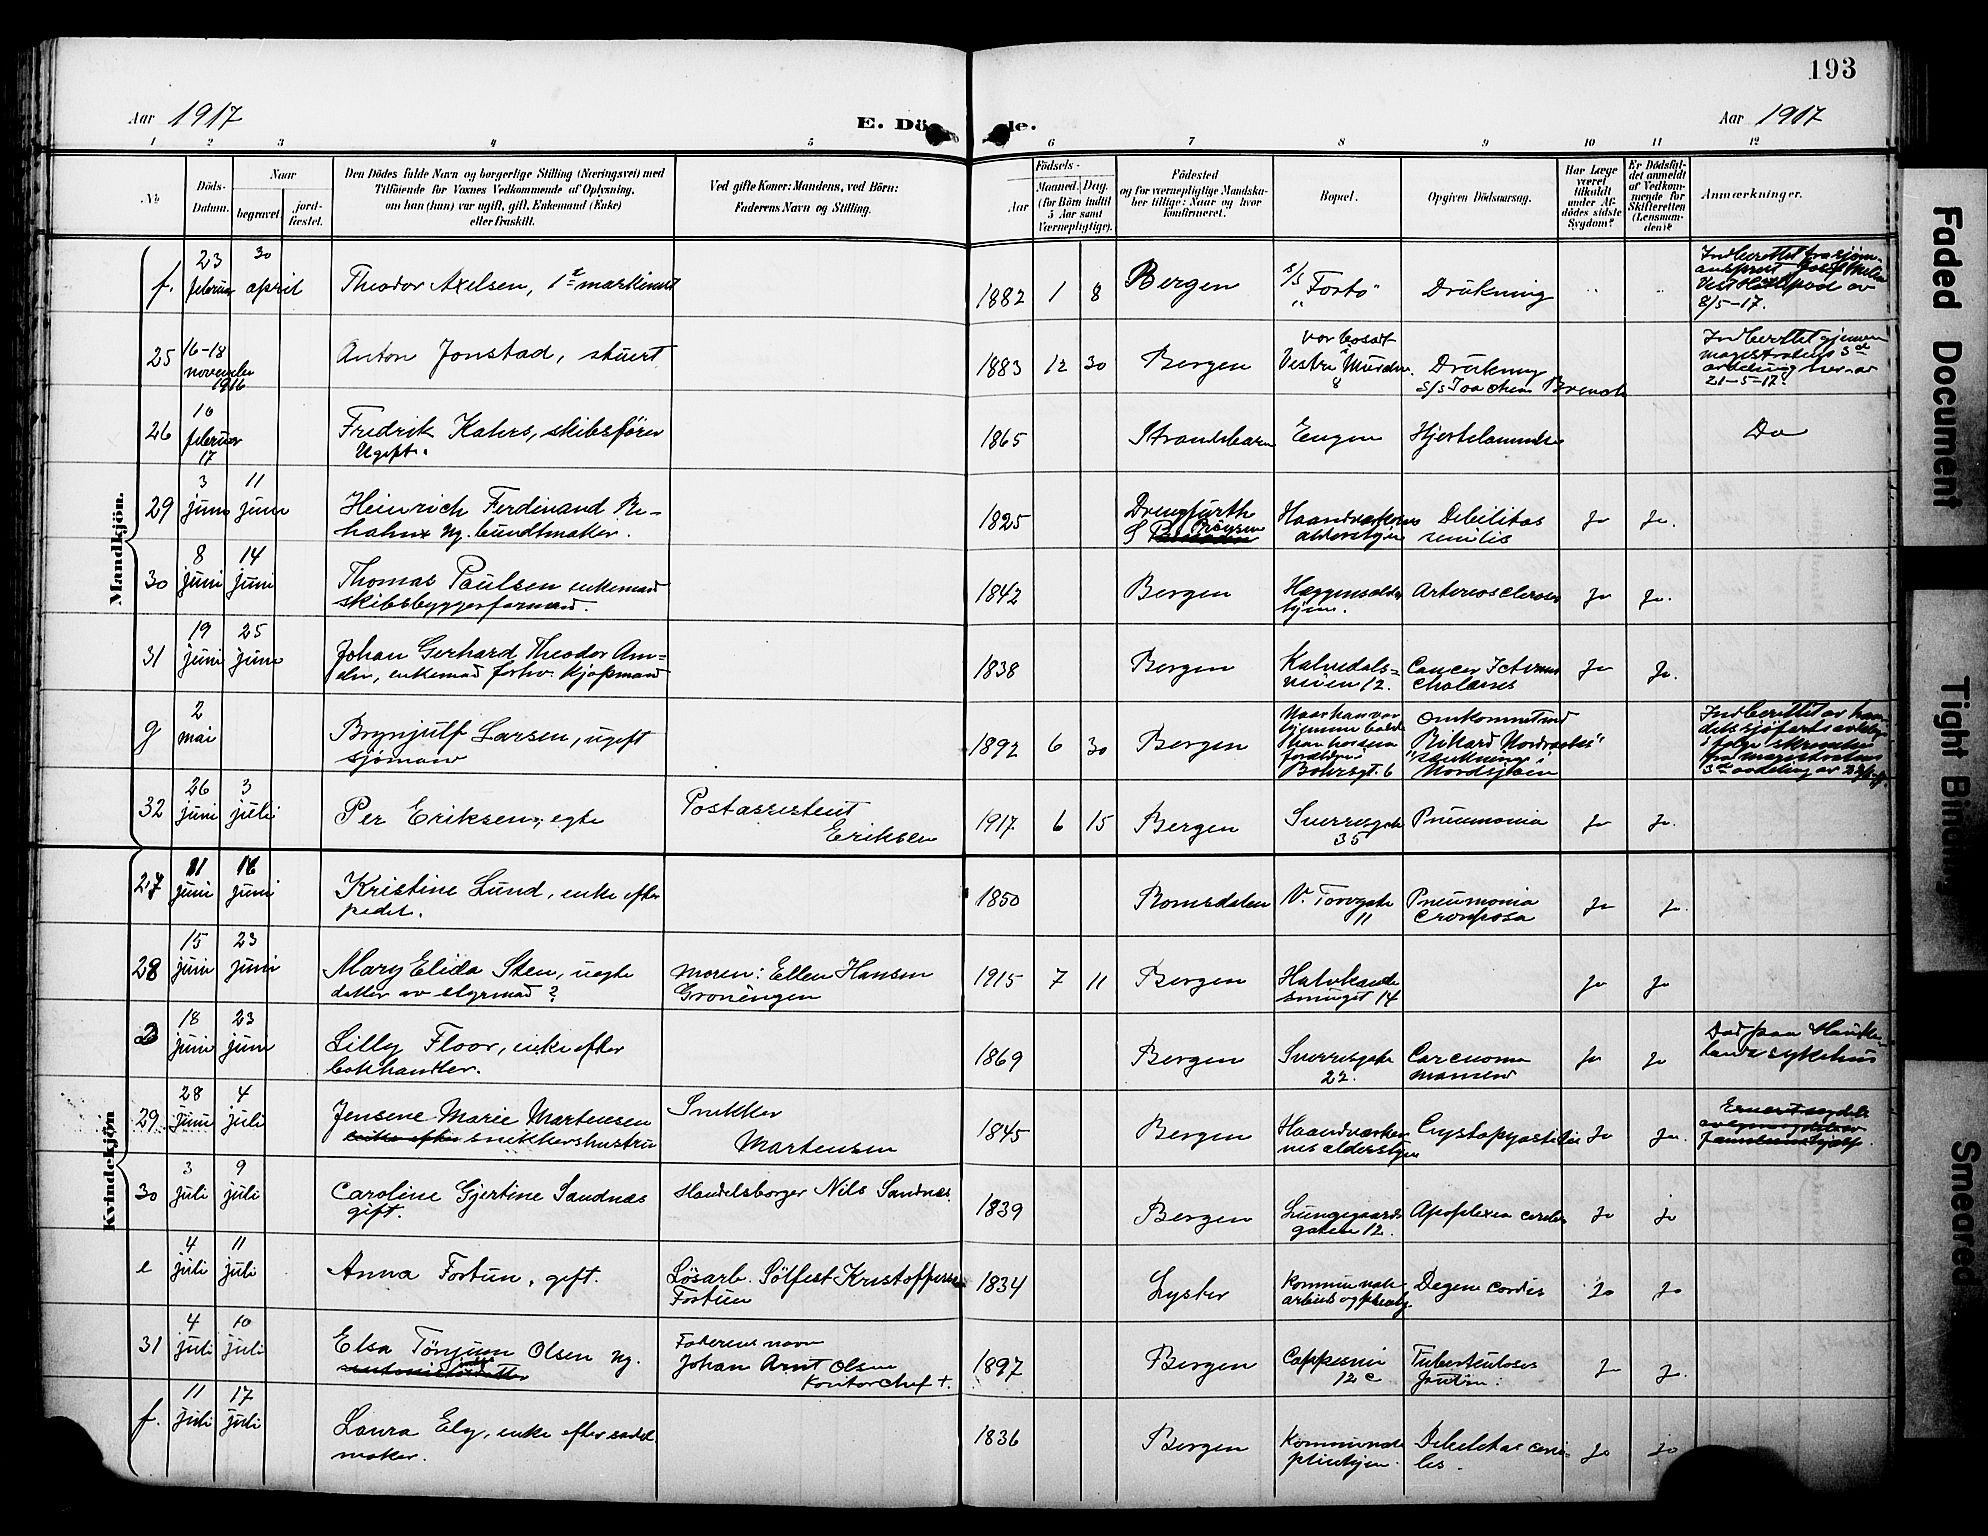 193
Aar 1917
E. Dö de.
Aar 1917
1 2 3 4 5 6 7 8 9 10 11 12
No
Döds-Datum.
Naar
begravet
jord-fæstet.
Den Dödes fulde Navn og borgerlige Stilling (Næringsvei) med
Tilföiende for Voxnes Vedkommende af Oplysning,
om han (hun) var ugift, gift, Enkemand (Enke)
eller fraskilt.
Ved gifte Koner: Mandens, ved Börn:
Faderens Navn og Stilling.
Födsels-
Aar
Maaned. Dag.
(for Börn indtil
5 Aar samt
Værnepligtige).
Födested
og for værnepligtige Mandska-
ber tillige: Naar og hvor
konfirmeret.
Bopæl.
Opgiven Dödsaarsag.
Har Læge
været
tilkaldt
under Af-
dödes sidste
Sygdom?
Er Dödsfal-
det anmeldt
af Vedkom-
mende for
Skifteretten
(Lensman-
den)?
Anmærkninger.
Mandkjön.
f. 23 februar 30 april Theodor Axelsen, 1ste maskinist 1882 1 8 Bergen s/s "Forto" Drukning " "
8/5-17.
25 16-18 november 1916 Anton Jonstad, stuert 1883 12 30 Bergen var bosat Vestre Murdm. 8 Drukning s/s Joachim
21-5-17.
26 10 februar 17 Fredrik Kahrs, skibsfører
Ugift. 1865 Strandebarm Engen Hjertelammelse Do
29 3 juni 11 juni Heinrich Ferdinand Re-
hahn ug. bundtmaker. 1825 Drengfurth Haandværkernes aldershjem Debilitas senilis Ja Ja.
30 8 juni 14 juni Thomas Paulsen enkemand
skibsbyggerformand. 1842 Bergen hjem. Arteriosclerosis Ja Ja.
31 19 juni 25 juni Johan Gerhard Theodor Am-
eln, enkemand forhv. Kjøpmand 1838 Bergen Kalvedals-
veien 12. Cancer Icterus Ja Ja.
g 2 mai Brynjulf Larsen, ugift
sjømand 1892 6 30 Bergen Naar han var hjemme
Bohrsgt. 6 omkommet ved "Rikard Nordraak's" sænkning i Nordsjøen
32 26 juni 3 juli Per Eriksen, egte Postassistent
Eriksen 1917 6 15 Bergen Sverresgate
35 Pneumonia Ja Ja.
Kvindekjön
27 11 juni 16 juni Kristine Lund, enke efter
1850 Romsdalen V. Torvgate
11 Pneumonia
Crouposa Ja Ja.
28 15 juni 23 juni Mary Elida Sten, uegte
datter av styrmand? Moren: Ellen Hansen
Groningen 1915 7 11 Bergen
smuget 14 Ja Ja
d 18 juni 23 juni Lilly Floor, enke efter
bokhandler. 1869 Bergen Sverresgate
22. Carcinoma
mammae Ja Ja Død paa Hauke-
lands sykehus
29 28 juni 4 juli Jensene Marie Martensen
enke efter snikkershustru Snikker
Martensen 1845 Bergen Haandværker-
nes aldershjem Ja Ja.
30 3 juli 9 juli Caroline Gjertine Sandnæs
gift. Handelsborger Nils Sandnæs. 1839 Bergen Lungegaards-
gaten 12. Apoplexia cerebri Ja Ja
e 4 juli 11 juli Anna Fortun, gift. Løsarb. Sølfest Kristoffersen
Fortun 1834 Lyster Degen. cordis Ja Ja
31 4 juli 10 juli Elsa Tönjum Olsen ug. Faderens navn
Johan Arnt Olsen
Kontorchef +. 1897 Bergen Cappesvei
12c Tuberkulosis Ja Ja.
f. 11 juli 17 juli Laura Ely, enke efter sadel-
maker. 1836 Bergen Kommunale
pleiehjem. Debilitas senilis. Ja Ja
Faded Document
Tight Binding
Smeared